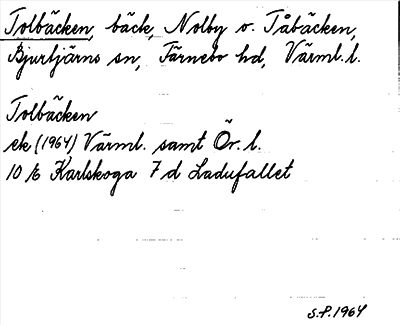 Tolbäcken, bäck, Nolby o. Tåbäcken,
Bjurtjärns sn, Färnebo hd, Värml. l.
Tolbäcken
ek (1964) Värml. samt Ör. l.
10 E Karlskoga 7 d Ladufallet
S.P. 1964